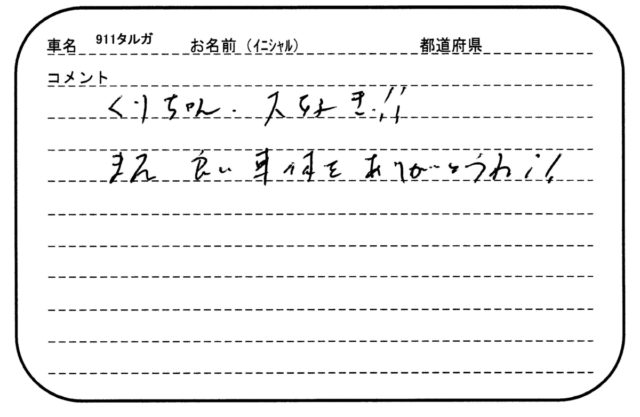 車名 911タルガ お名前（ｲﾆｼｬﾙ） 都道府県
コメント
くりちゃん、大好き!!
また 良い車 をありがとうね!!